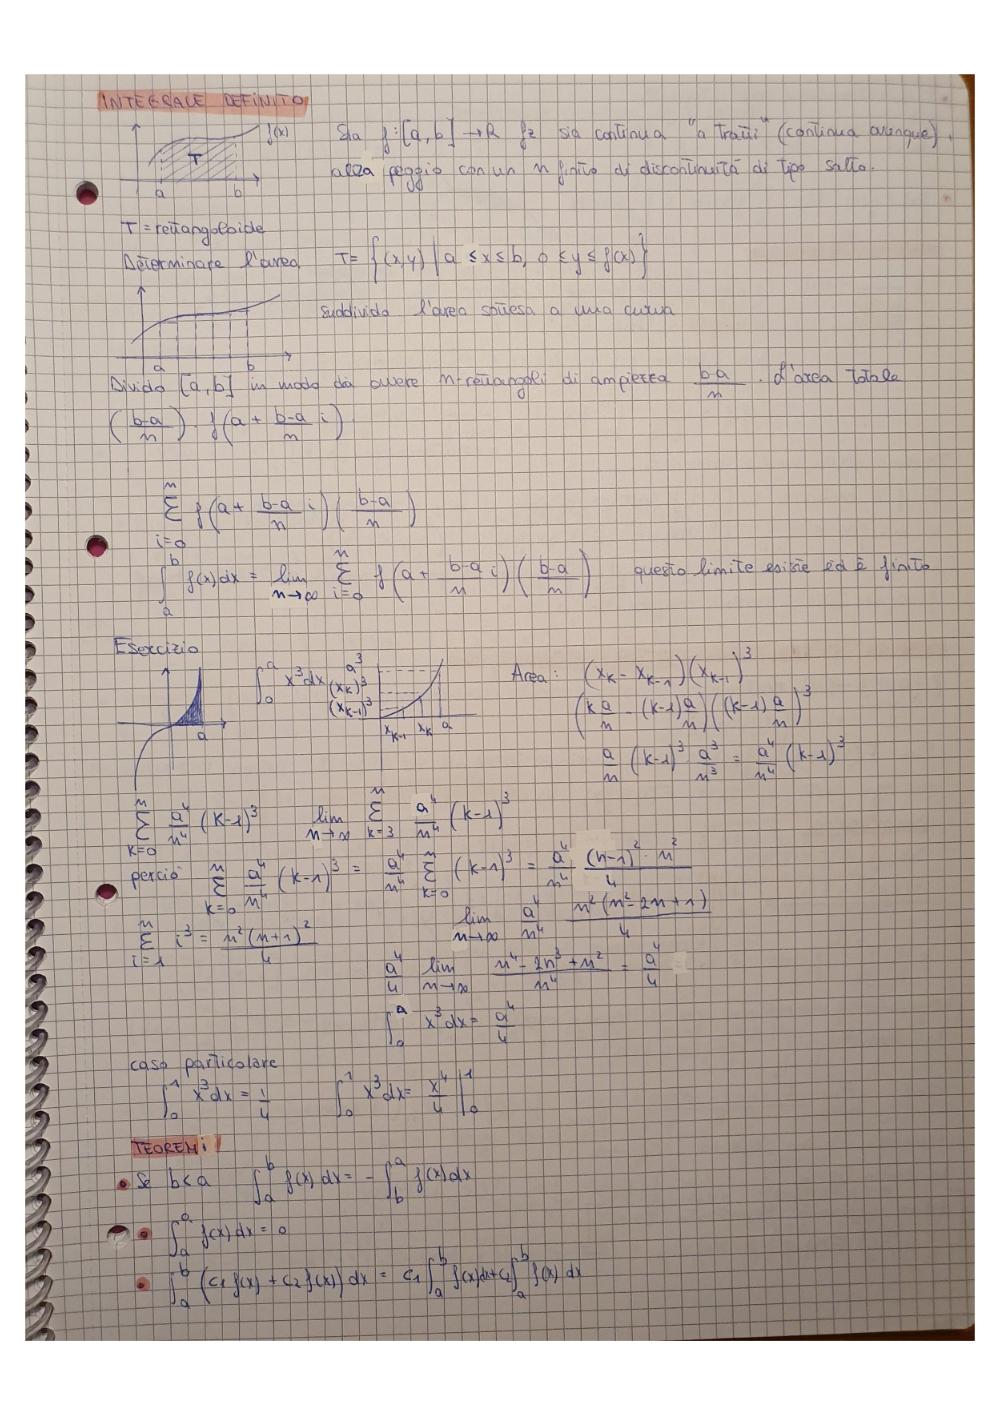 INTEGRALE DEFINITO
f(x) Sia f:[a,b]→R f è sia continua "a tratti" (continua ovunque).
T alla peggio con un n finito di discontinuità di tipo salto.
a b
T = rettangoloide
Determinare l'area T= {(x,y) | a ≤ x ≤ b, 0 ≤ y ≤ f(x)}
suddivido l'area sottesa a una curva
a b
Divido [a,b] in modo da avere n-rettangoli di ampiezza (b-a)/n. L'area totale
((b-a)/n) · f(a + (b-a)/n i)
∑_{i=0}^{n} f(a + (b-a)/n i) ((b-a)/n)
∫_a^b f(x)dx = lim_{n→∞} ∑_{i=0}^{n} f(a + (b-a)/n i) ((b-a)/n) questo limite esiste ed è finito
Esercizio
a
∫_0^a x³dx
a³
(x_k)³
(x_{k-1})³
x_{k-1} x_k a
Area: (x_k - x_{k-1})(x_{k-1})³
(k a/n - (k-1) a/n)((k-1) a/n)³
a/n (k-1)³ a³/n³ = a⁴/n⁴ (k-1)³
∑_{k=0}^{n} a⁴/n⁴ (k-1)³ lim_{n→∞} ∑_{k=3}^{n} a⁴/n⁴ (k-1)³
perciò ∑_{k=0}^{n} a⁴/n⁴ (k-1)³ = a⁴/n⁴ ∑_{k=0}^{n} (k-1)³ = a⁴/n⁴ (n-1)² · n²/4
∑_{i=1}^{n} i³ = n²(n+1)²/4 lim_{n→∞} a⁴/n⁴ n²(n²-2n+1)/4
a⁴/4 lim_{n→∞} (n⁴ - 2n³ + n²)/n⁴ = a⁴/4
∫_0^a x³dx = a⁴/4
caso particolare
∫_0^1 x³dx = 1/4 ∫_0^1 x³dx = x⁴/4 |_0^1
TEOREMi
• Se b<a ∫_a^b f(x) dx = - ∫_b^a f(x)dx
• ∫_a^a f(x)dx = 0
• ∫_a^b (c₁ f(x) + c₂ f(x)) dx = c₁ ∫_a^b f(x)dx + c₂ ∫_a^b f(x) dx